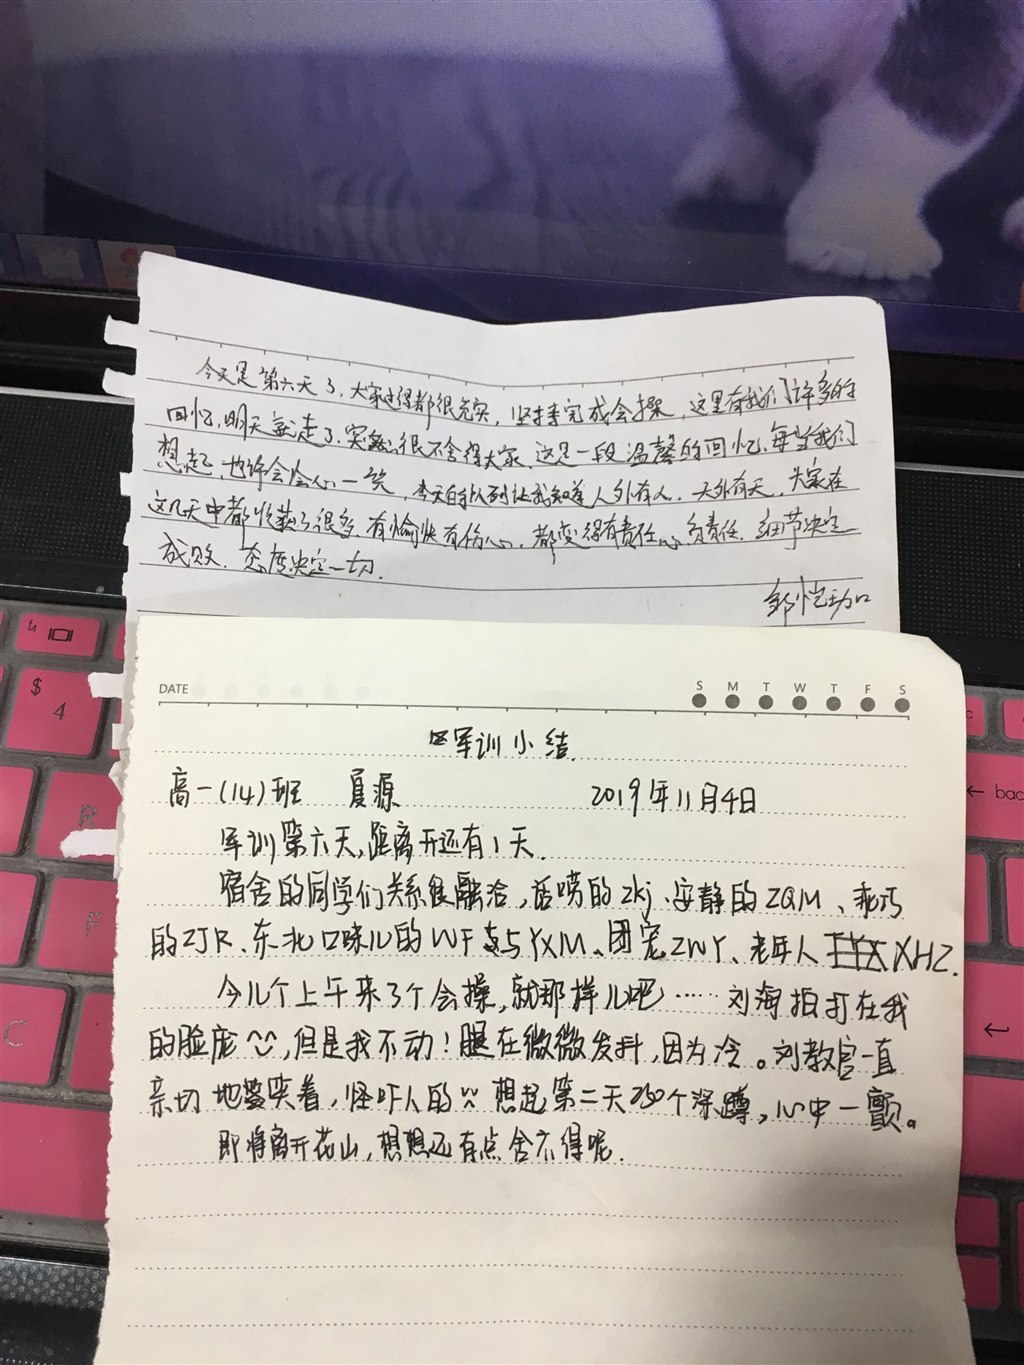 今天是第六天了，大家过得都很充实，坚持完成会操，这里有我们许多的
回忆，明天就走了，突然很不舍得大家，这是一段温馨的回忆，每当我们
想起，也许会会心一笑，今天的队列让我知道人外有人，天外有天，大家在
这几天中都收获了很多，有愉快有伤心，都变得有责任心，负责任，细节决定
成败，态度决定一切，
DATE
S M T W T F S
军训小结
高一(14)班 夏源 2019年11月4日
军训第六天,距离开还有1天.
宿舍的同学们关系很融洽,话唠的ZKj、安静的ZQM、乖巧
的ZJR、东北口味儿的WF与YXM、团宠ZWY、老年人XHZ.
今儿个上午来了个会操,就那样儿吧……刘海拍打在我
的脸庞,但是我不动!腿在微微发抖,因为冷。刘教官一直
亲切地笑着,怪吓人的 想起第二天250个深蹲,心中一颤。
即将离开花山,想想还有点舍不得呢.
$
4
R
F
C
bac